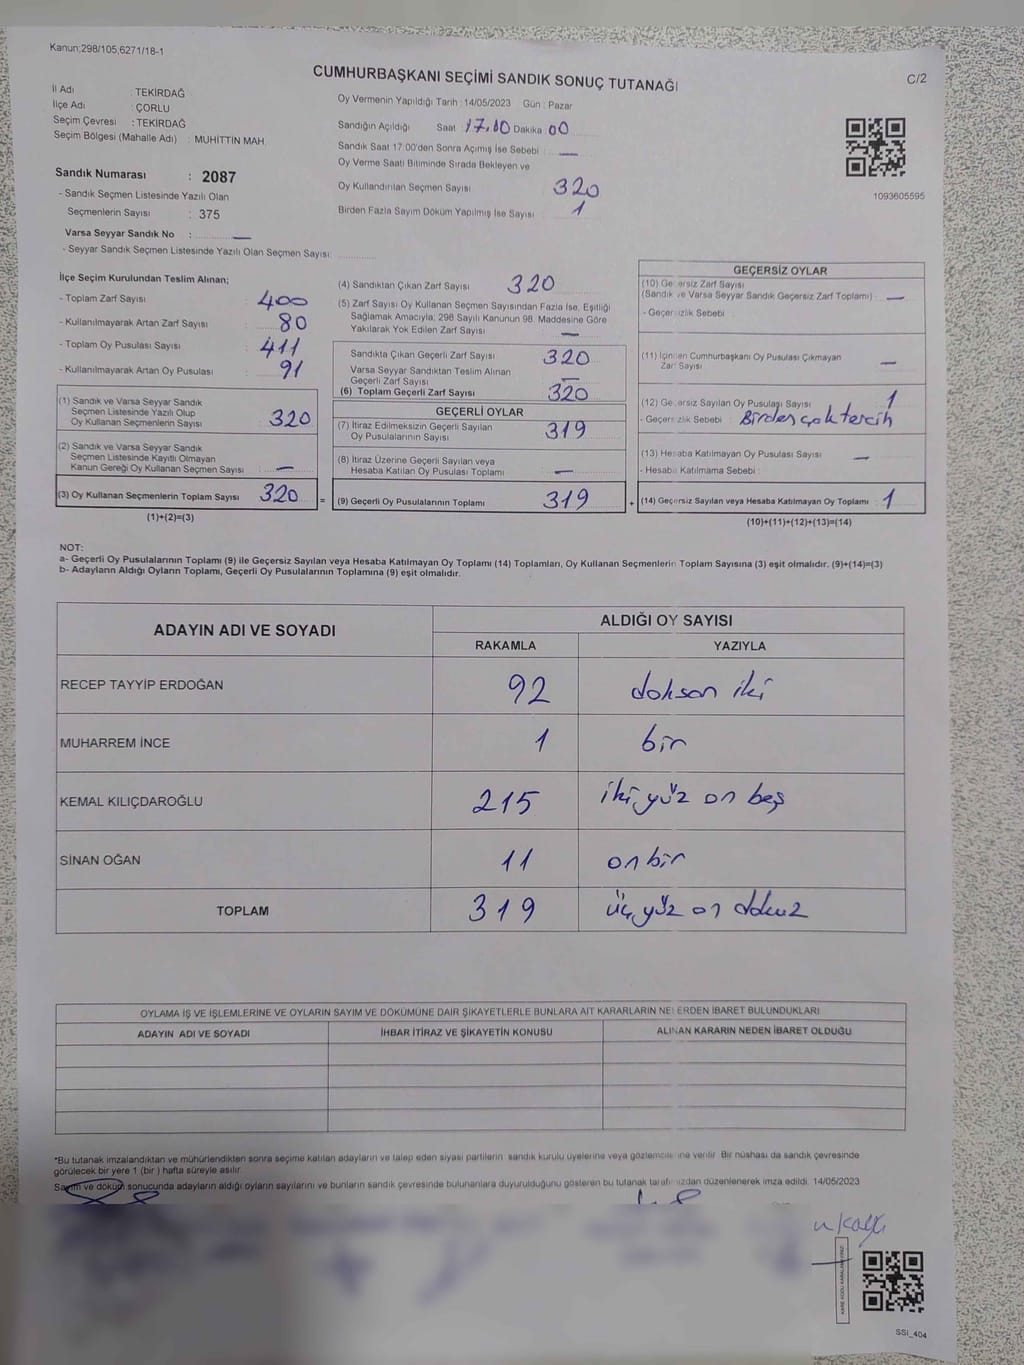 Kanun;298/105,6271/18-1
C/2
CUMHURBAŞKANI SEÇİMİ SANDIK SONUÇ TUTANAĞI
İl Adı : TEKİRDAĞ
İlçe Adı : ÇORLU
Seçim Çevresi : TEKİRDAĞ
Seçim Bölgesi (Mahalle Adı) : MUHİTTİN MAH.
Sandık Numarası : 2087
- Sandık Seçmen Listesinde Yazılı Olan
Seçmenlerin Sayısı : 375
Varsa Seyyar Sandık No : —
- Seyyar Sandık Seçmen Listesinde Yazılı Olan Seçmen Sayısı:
Oy Vermenin Yapıldığı Tarih : 14/05/2023 Gün : Pazar
Sandığın Açıldığı Saat : 17.00 Dakika : 00
Sandık Saat 17:00'den Sonra Açımış İse Sebebi : —
Oy Verme Saati Bitiminde Sırada Bekleyen ve
Oy Kullandırılan Seçmen Sayısı 320
Birden Fazla Sayım Döküm Yapılmış İse Sayısı : 1
1093605595
İlçe Seçim Kurulundan Teslim Alınan;
- Toplam Zarf Sayısı : 400
- Kullanılmayarak Artan Zarf Sayısı : 80
- Toplam Oy Pusulası Sayısı : 411
- Kullanılmayarak Artan Oy Pusulası : 91
(1) Sandık ve Varsa Seyyar Sandık
Seçmen Listesinde Yazılı Olup
Oy Kullanan Seçmenlerin Sayısı : 320
(2) Sandık ve Varsa Seyyar Sandık
Seçmen Listesinde Kayıtlı Olmayan
Kanun Gereği Oy Kullanan Seçmen Sayısı : —
(3) Oy Kullanan Seçmenlerin Toplam Sayısı 320 =
(1)+(2)=(3)
(4) Sandıktan Çıkan Zarf Sayısı : 320
(5) Zarf Sayısı Oy Kullanan Seçmen Sayısından Fazla İse, Eşitliği
Sağlamak Amacıyla; 298 Sayılı Kanunun 98. Maddesine Göre
Yakılarak Yok Edilen Zarf Sayısı : —
Sandıkta Çıkan Geçerli Zarf Sayısı : 320
Varsa Seyyar Sandıktan Teslim Alınan
Geçerli Zarf Sayısı : —
(6) Toplam Geçerli Zarf Sayısı : 320
GEÇERLİ OYLAR
(7) İtiraz Edilmeksizin Geçerli Sayılan
Oy Pusulalarının Sayısı : 319
(8) İtiraz Üzerine Geçerli Sayılan veya
Hesaba Katılan Oy Pusulası Toplamı : —
(9) Geçerli Oy Pusulalarının Toplamı : 319 +
GEÇERSİZ OYLAR
(10) Geçersiz Zarf Sayısı
(Sandık ve Varsa Seyyar Sandık Geçersiz Zarf Toplamı) : —
- Geçersizlik Sebebi :
(11) İçinden Cumhurbaşkanı Oy Pusulası Çıkmayan
Zarf Sayısı : —
(12) Geçersiz Sayılan Oy Pusulası Sayısı : 1
- Geçersizlik Sebebi : Birden çok tercih
(13) Hesaba Katılmayan Oy Pusulası Sayısı : —
- Hesaba Katılmama Sebebi :
(14) Geçersiz Sayılan veya Hesaba Katılmayan Oy Toplamı : 1
(10)+(11)+(12)+(13)=(14)
NOT:
a- Geçerli Oy Pusulalarının Toplamı (9) ile Geçersiz Sayılan veya Hesaba Katılmayan Oy Toplamı (14) Toplamları, Oy Kullanan Seçmenlerin Toplam Sayısına (3) eşit olmalıdır. (9)+(14)=(3)
b- Adayların Aldığı Oyların Toplamı, Geçerli Oy Pusulalarının Toplamına (9) eşit olmalıdır.
ADAYIN ADI VE SOYADI
ALDIĞI OY SAYISI
RAKAMLA YAZIYLA
RECEP TAYYİP ERDOĞAN 92 doksan iki
MUHARREM İNCE 1 bir
KEMAL KILIÇDAROĞLU 215 iki yüz on beş
SİNAN OĞAN 11 on bir
TOPLAM 319 üç yüz on dokuz
OYLAMA İŞ VE İŞLEMLERİNE VE OYLARIN SAYIM VE DÖKÜMÜNE DAİR ŞİKAYETLERLE BUNLARA AİT KARARLARIN NELERDEN İBARET BULUNDUKLARI
ADAYIN ADI VE SOYADI İHBAR İTİRAZ VE ŞİKAYETİN KONUSU ALINAN KARARIN NEDEN İBARET OLDUĞU
*Bu tutanak imzalandıktan ve mühürlendikten sonra seçime katılan adayların ve talep eden siyasi partilerin sandık kurulu üyelerine veya gözlemcilerine verilir. Bir nüshası da sandık çevresinde
görülecek bir yere 1 (bir ) hafta süreyle asılır.
Sayım ve döküm sonucunda adayların aldığı oyların sayılarını ve bunların sandık çevresinde bulunanlara duyurulduğunu gösteren bu tutanak tarafımızdan düzenlenerek imza edildi. 14/05/2023
SSİ_404